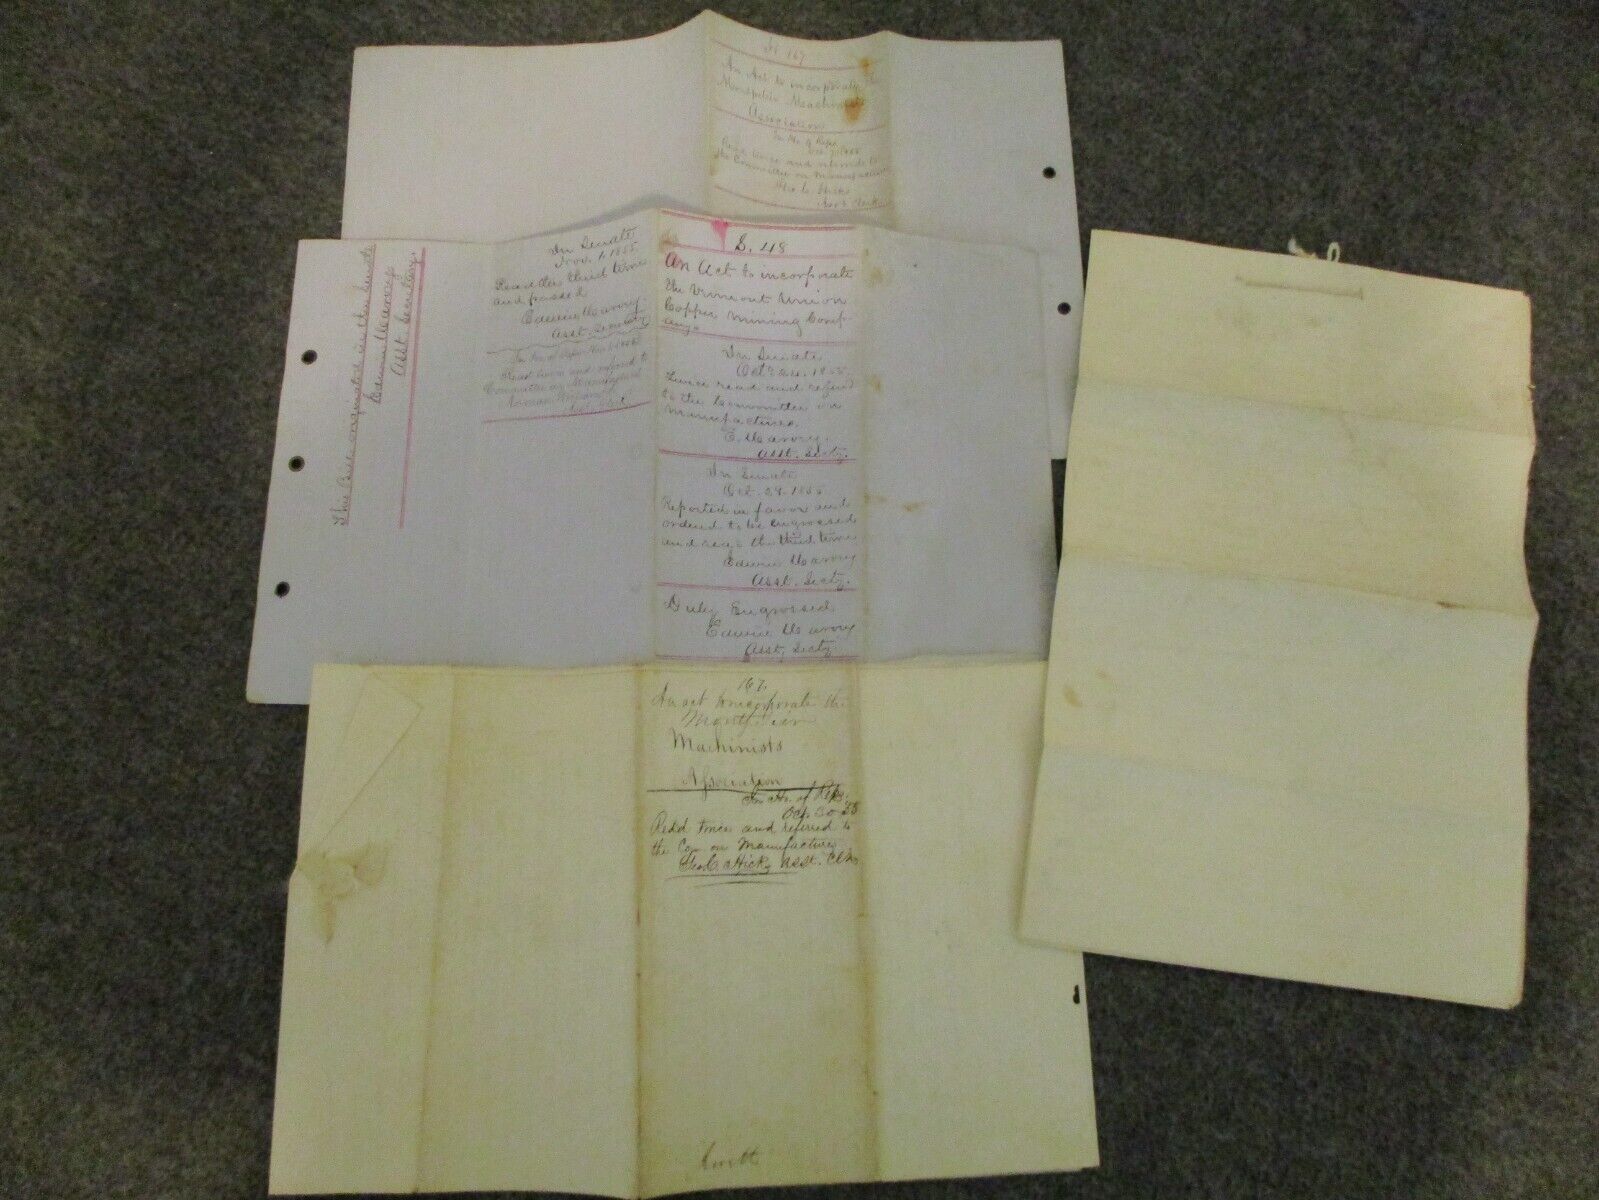 167
An Act to incorporate the
Montpelier Machinists
Association
In Ho. of Reps
Read twice and referred to
the Committee on Manufactures
Geo C. Hicks
Asst Clerk
This Bill originated in the Senate
Asst. Secretary.
In Senate
Nov. 1, 1855
Read the third time
and passed
Asst. Secretary
In Ho. of Reps Nov 1 1855
Read twice and referred to
Committee on Manufactures
Asst Clerk
S. 48
An Act to incorporate
the Vermont Union
Copper Mining Comp
any.
In Senate
Oct. 24. 1855.
Twice read and referred
to the Committee on
Manufactures.
Asst. Secty.
In Senate
Oct. 29. 1855
Reported in favor and
ordered to be engrossed
and read the third time
Asst. Secty.
Duly Engrossed
Asst. Secty
167
An act to incorporate the
Montpelier
Machinists
Association
In Ho. of Reps.
Oct. 30 55
Read twice and referred to
the Com on Manufactures
Geo. C. Hicks Asst. Clk